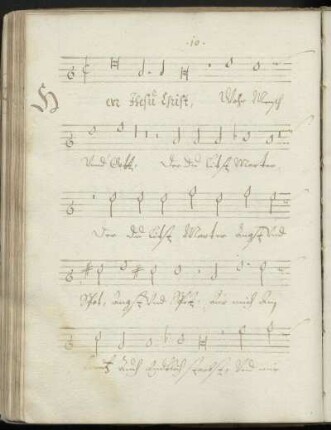 10.
Herr Jesu Christ, Wahr Mensch
Und Gott, Der du littst Marter
Der du littst Marter angst Und
Spot, angst Und Spot, Für mich am
auch Endlich Und mir